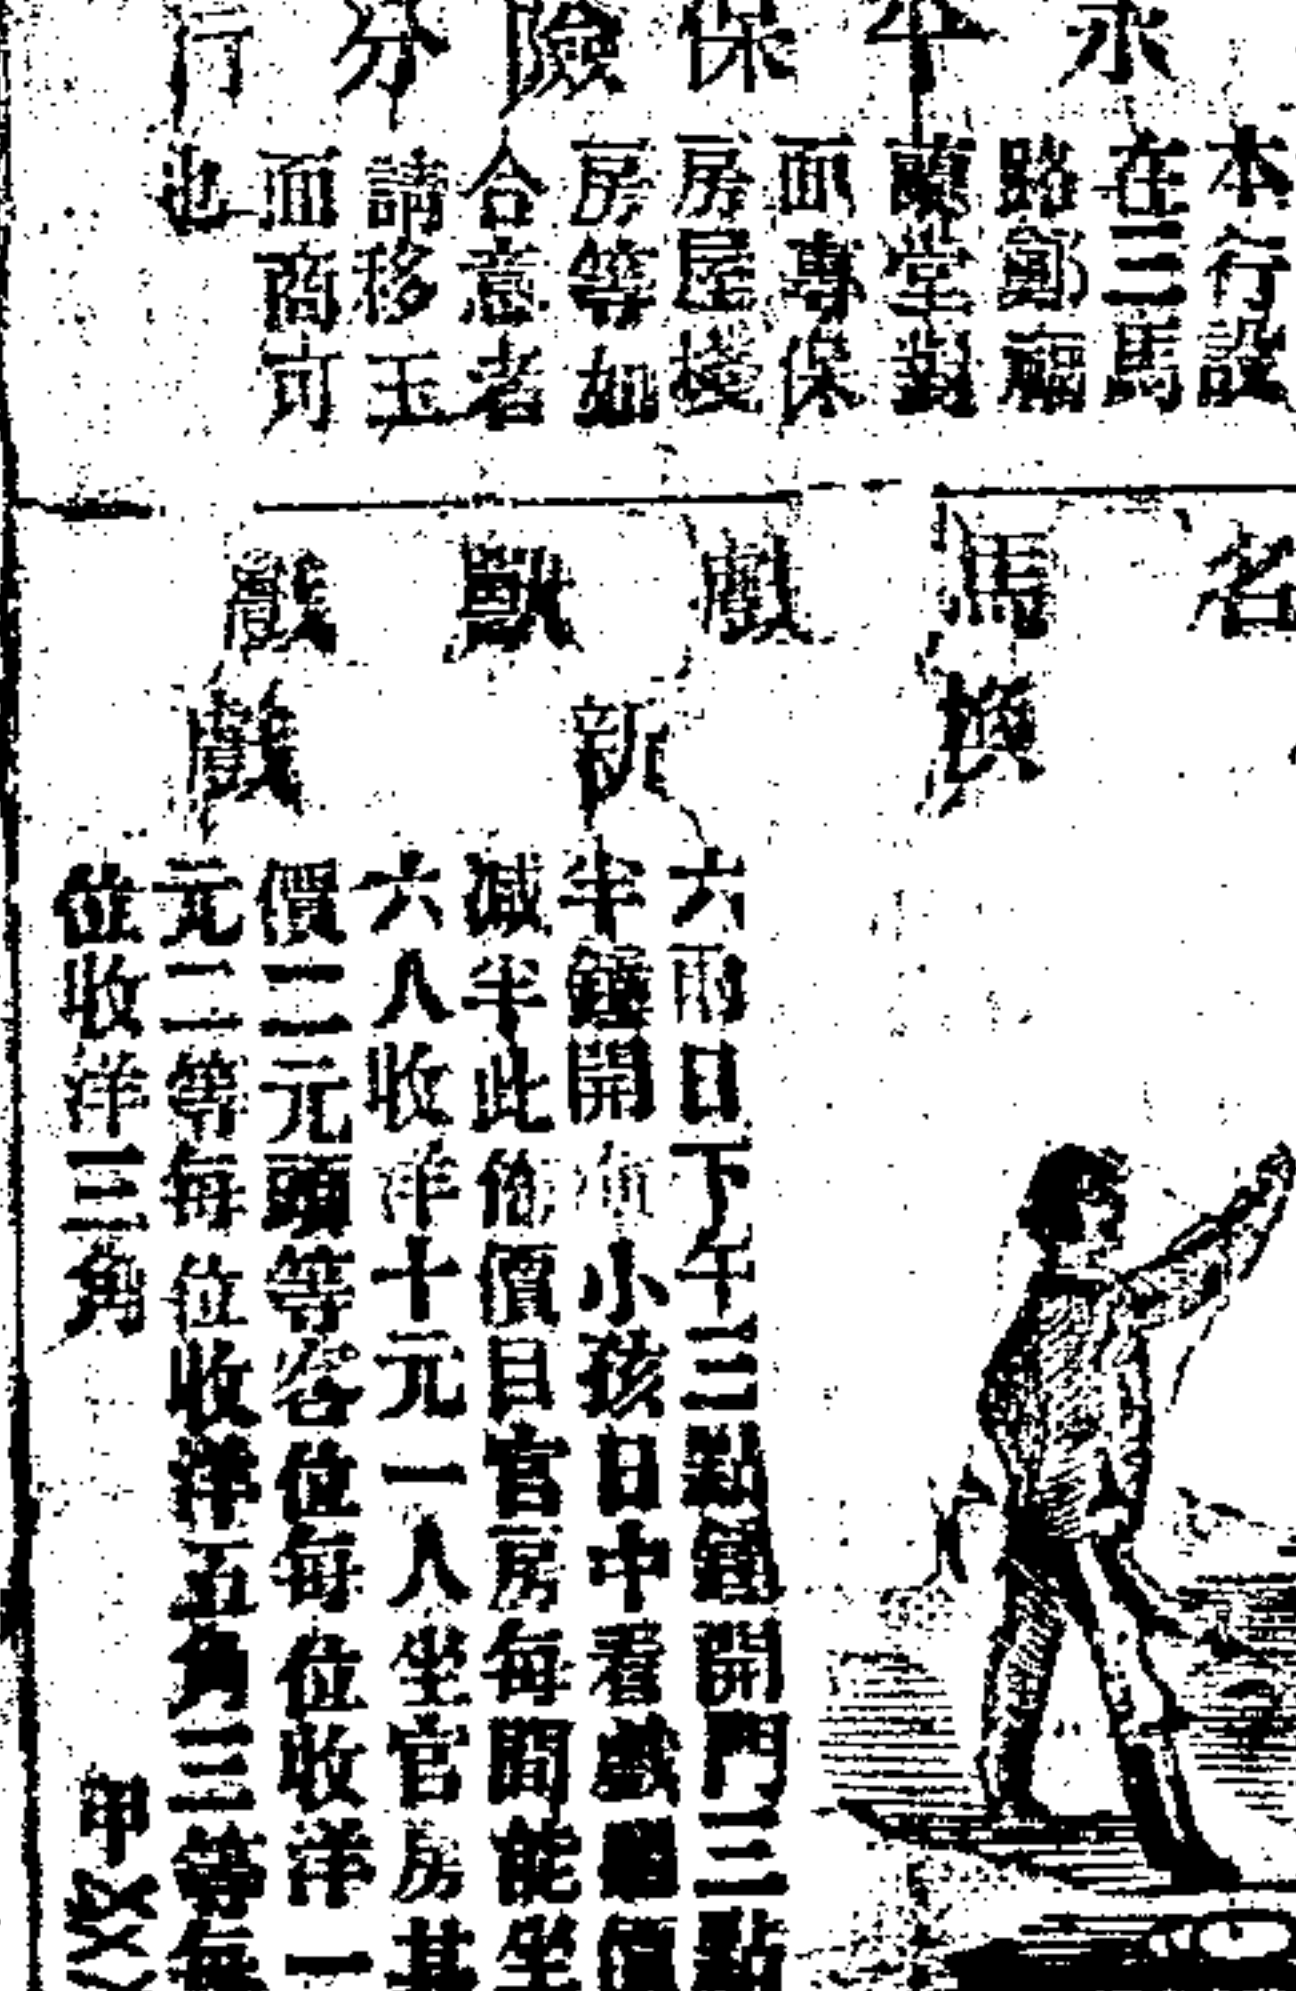 永平保險分行
本行設
在三馬
路鄭福
蘭堂對
面專保
房屋棧
房等如
合意者
請移玉
面商可
也
名馬戲獸戲
換新戲
六雨日下午三點鐘開門三點
半鐘開演小孩日中看戲照價
減半此佈價目官房每間能坐
六人收洋十元一人坐官房其
價二元頭等客位每位收洋一
元二等每位收洋五角三等每
位收洋三角
甲